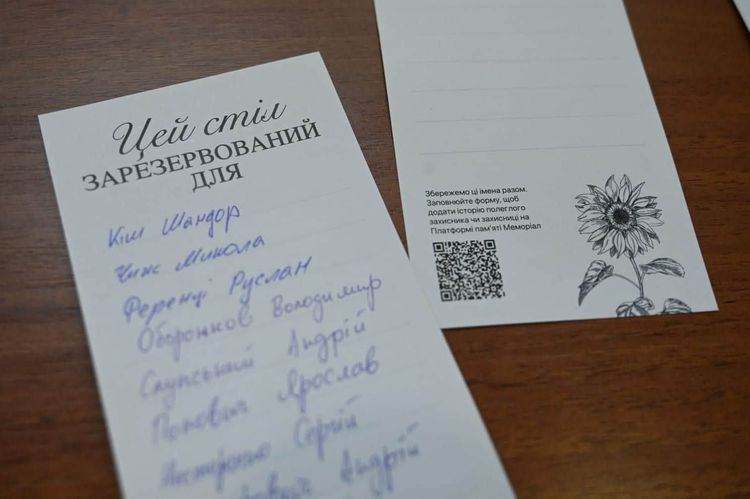 Цей стіл
ЗАРЕЗЕРВОВАНИЙ
ДЛЯ
Кіш Шандор
Чиж Микола
Ференці Руслан
Оборонков Володимир
Слупський Андрій
Попович Ярослав
Нестеренко Сергій
Андрій
Збережемо ці імена разом.
Заповнюйте форму, щоб
додати історію полеглого
захисника чи захисниці на
Платформі пам'яті Меморіал